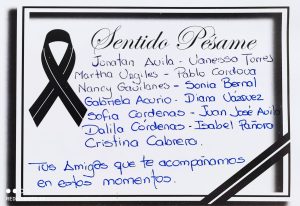 Sentido Pésame
Jonatan Avila - Vanessa Torres
Martha Urgiles - Pablo Cordova
Nancy Gavilanes - Sonia Bernal
Gabriela Acurio - Diana Vázquez
Sofia Cárdenas - Juan José Avila
Dalila Córdenas - Isabel Pañora
Cristina Cabrera.
Tus Amigos que te acompañamos
en estos momentos.